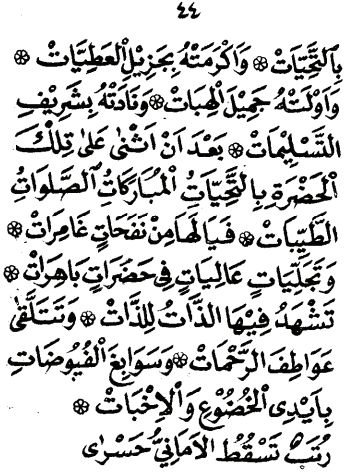 ٤٤
بِالتَّحِيَّاتْ ۞ وَاَكْرَمَتْهُ بِجَزِيْلِ الْعَطِيَّاتْ ۞
وَاَوْلَتْهُ جَمِيْلَ الْهِبَاتْ ۞ وَنَادَتْهُ بِشَرِيْفِ
التَّسْلِيْمَاتْ ۞ بَعْدَ اَنْ اَثْنٰى عَلىٰ تِلْكَ
الْحَضْرَةِ بِالتَّحِيَّاتِ الْمُبَارَكَاتِ الصَّلَوَاتِ
الطَّيِّبَاتْ ۞ فَيَالَهَا مِنْ نَفَحَاتٍ غَامِرَاتْ ۞
وَتَجَلِّيَاتٍ عَالِيَاتٍ فِى حَضَرَاتٍ بَاهِرَاتْ ۞
تَشْهَدُ فِيْهَا الذَّاتُ لِلذَّاتْ ۞ وَتَتَلَقّٰى
عَوَاطِفَ الرَّحَمَاتْ ۞ وَسَوَابِغَ الْفُيُوضَاتِ
بِاَيْدِى الْخُضُوْعِ وَالْاِخْبَاتْ ۞
رُتَبٌ تَسْقُطُ الْاَمَانِيُّ حَسْرٰى